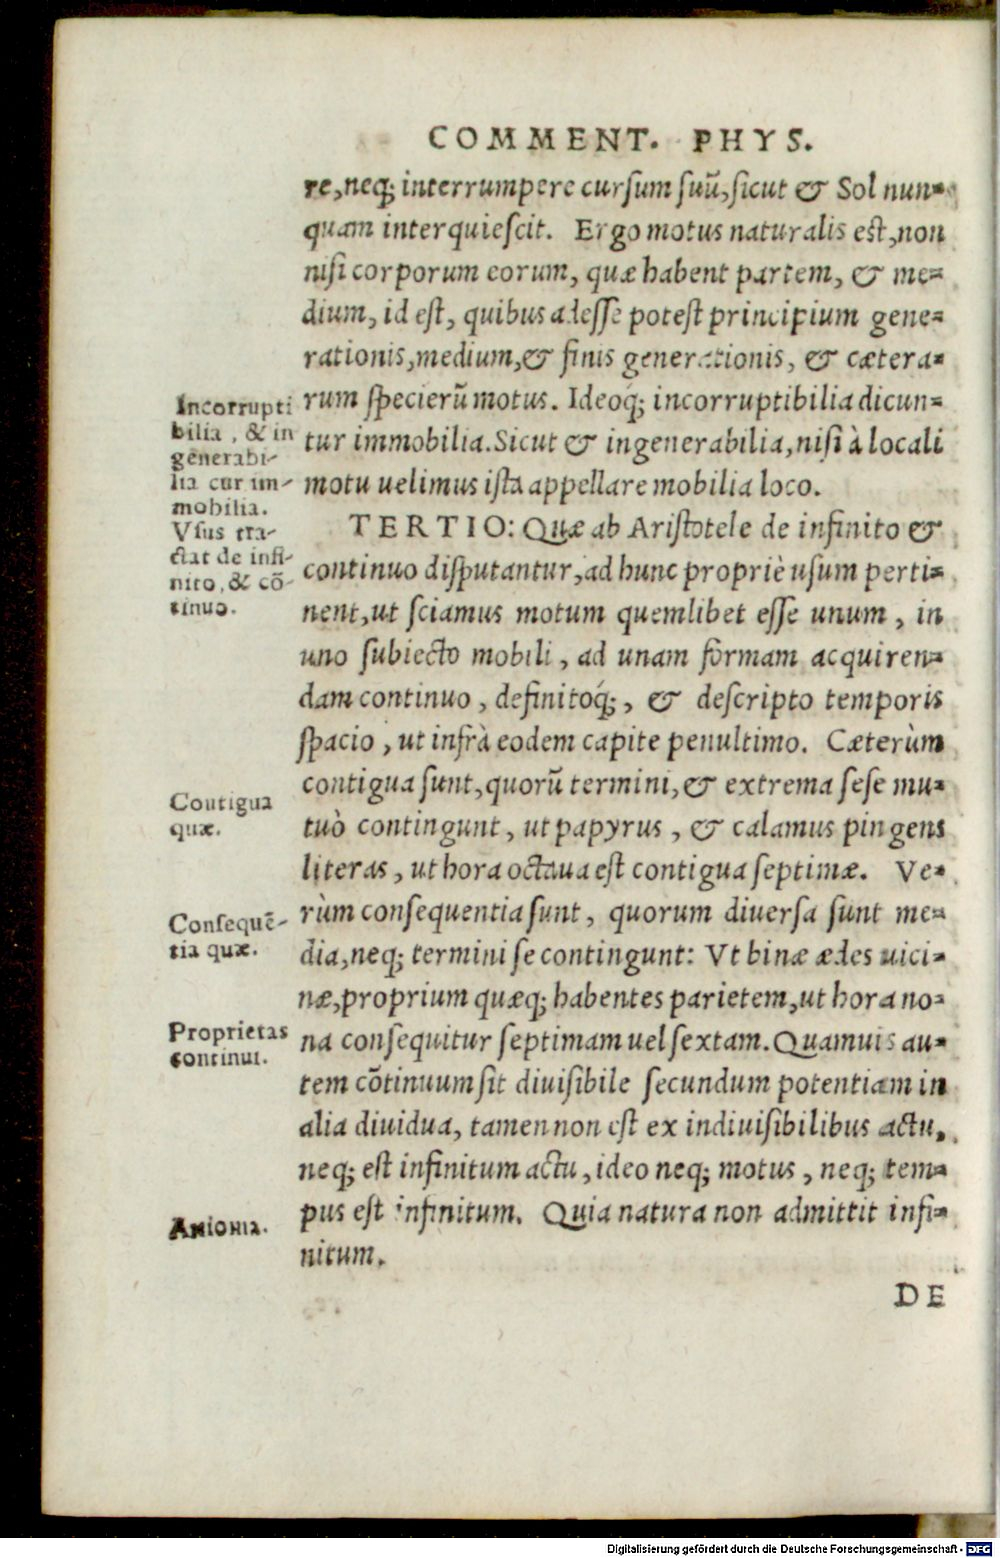 COMMENT. PHYS.
re, neq; interrumpere cursum suū, sicut & Sol nun=
quam interquiescit. Ergo motus naturalis est, non
nisi corporum eorum, quæ habent partem, & me=
dium, id est, quibus adesse potest principium gene=
rationis, medium, & finis generationis, & cætera=
rum specierū motus. Ideoq́; incorruptibilia dicun=
tur immobilia. Sicut & ingenerabilia, nisi à locali
motu uelimus ista appellare mobilia loco.
Incorrupti
bilia, & in
generabi-
lia cur im-
mobilia.
TERTIO: Quæ ab Aristotele de infinito &
continuo disputantur, ad hunc propriè usum perti=
nent, ut sciamus motum quemlibet esse unum, in
uno subiecto mobili, ad unam formam acquiren=
dam continuo, definitoq́;, & descripto temporis
spacio, ut infrà eodem capite penultimo. Cæterùm
contigua sunt, quorū termini, & extrema sese mu=
tuò contingunt, ut papyrus, & calamus pingens
literas, ut hora octaua est contigua septimæ. Ve=
rùm consequentia sunt, quorum diuersa sunt me=
dia, neq; termini se contingunt: Vt binæ ædes uici=
næ, proprium quæq; habentes parietem, ut hora no=
na consequitur septimam uel sextam. Quamuis au=
tem cōtinuum sit diuisibile secundum potentiam in
alia diuidua, tamen non est ex indiuisibilibus actu,
neq; est infinitum actu, ideo neq; motus, neq; tem=
pus est infinitum. Quia natura non admittit infi=
nitum.
Vsus tra-
ctat de infi-
nito, & cō-
tinuo.
Contigua
quæ.
Consequē-
tia quæ.
Proprietas
continui.
Axioma.
DE
Digitalisierung gefördert durch die Deutsche Forschungsgemeinschaft - DFG